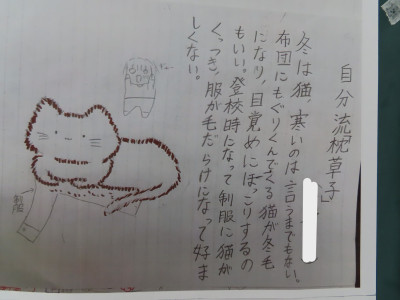 自分流枕草子」
冬は猫、寒いのは言うまでもない。
布団にもぐりくんでくる猫が冬毛
になり、目覚めにほっこりするの
もいい。登校時になって制服に猫が
くっつき、服が毛だらけになって好ま
しくない。
制服